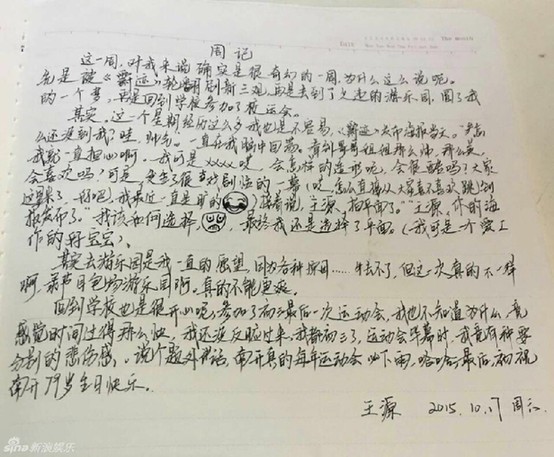 周记
这一周,对我来说确实是很奇幻的一周,为什么这么说呢。
先是被《爵迹》轮翻刷新三观,再是去到了久违的游乐园,圆了我
的一个梦,再是回到学校参加了校运会。
其实,这一个星期经历这么多我也是不容易,《爵迹》发布海报当天,
么还没到我?哇,帅气。一直在我脑中回荡。看到哥哥姐姐那么帅,那么美
我就一直担心啊,我可是xxxx哒,会怎样的造形呢,会很酷吗?大家
会喜欢吗?可是,发生了很喜剧性的一幕(哎,怎么直播从大家喜不喜欢跳到
这里来了,好吧)我最近一直是萌的 接着说,王源,拍平面了。""王源,你的海
报发布了。"我该如何选择, ,最终我还是选择了平面。(我可是一个爱工
作的好宝宝)。
其实去游乐园是我一直的愿望,因为各种原因……都去不了,但这一次真的不一样
啊,节目包场游乐园啊。真的不能更爽。
回到学校也是很开心呢,参加了初中最后一次运动会,我也不知道为什么,竟
感觉时间过得那么快,我还没反应过来,我都初三了,运动会毕幕时,我竟有种要
分别的悲伤感,说个题外话,南开真的每年运动会必下雨,哈哈,最后,祝福
南开79岁生日快乐。
王源 2015.10.17 周六
sina新浪娱乐